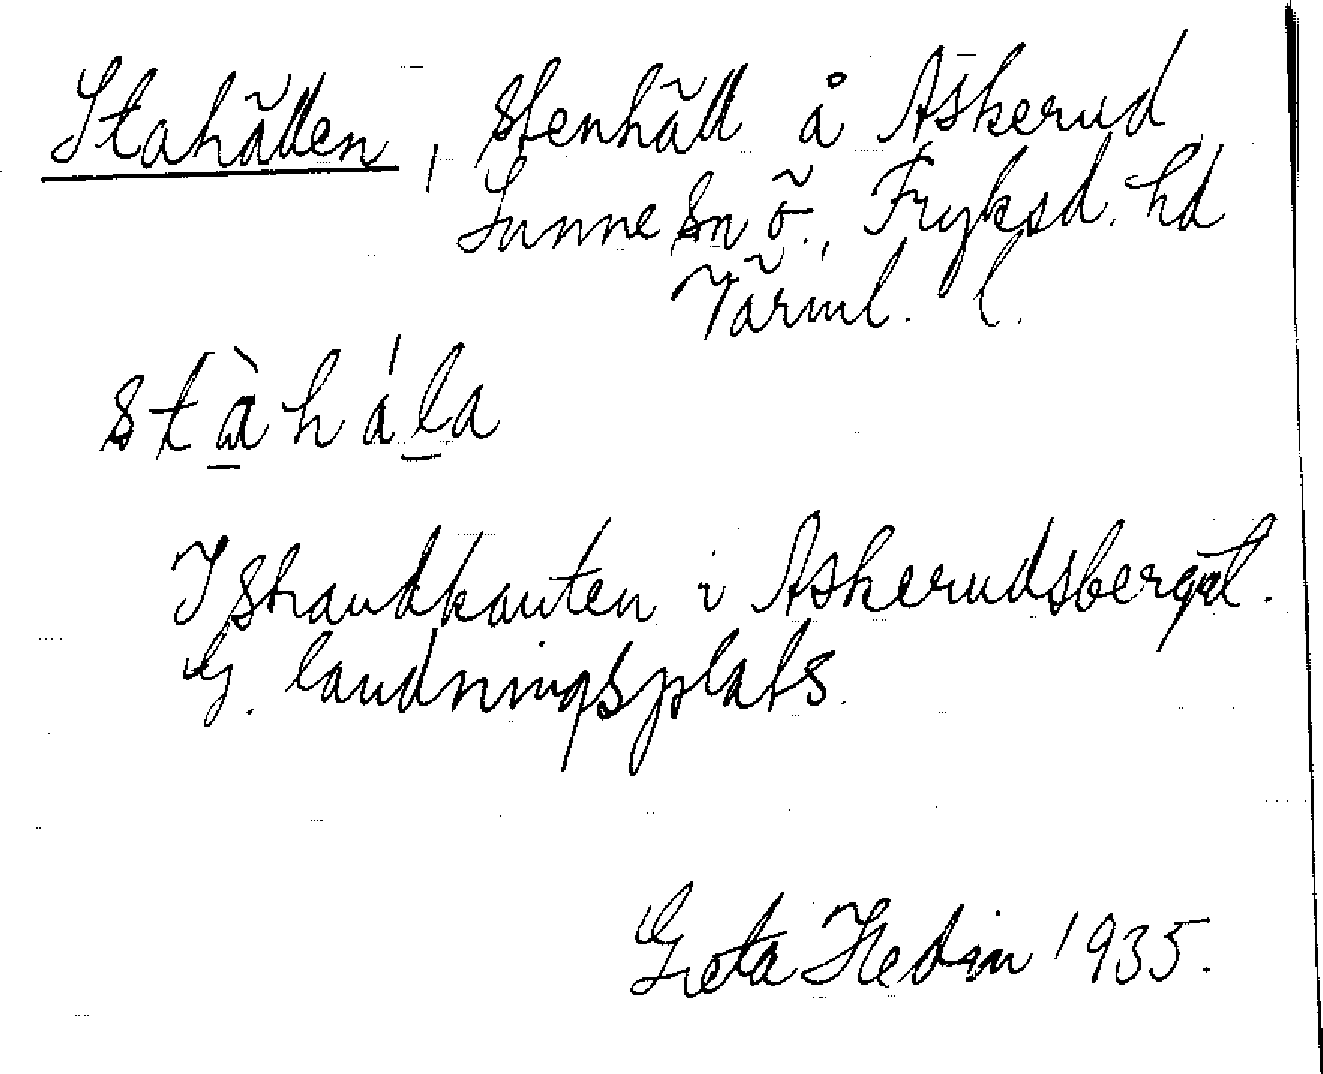 Stahällen, Stenhäll å Askerud
Sunne sn ö., Fryksd. hd
Värml. l.
stàhála
I strandkanten i Askerudsberget.
G. landningsplats.
Greta Hedin 1935.